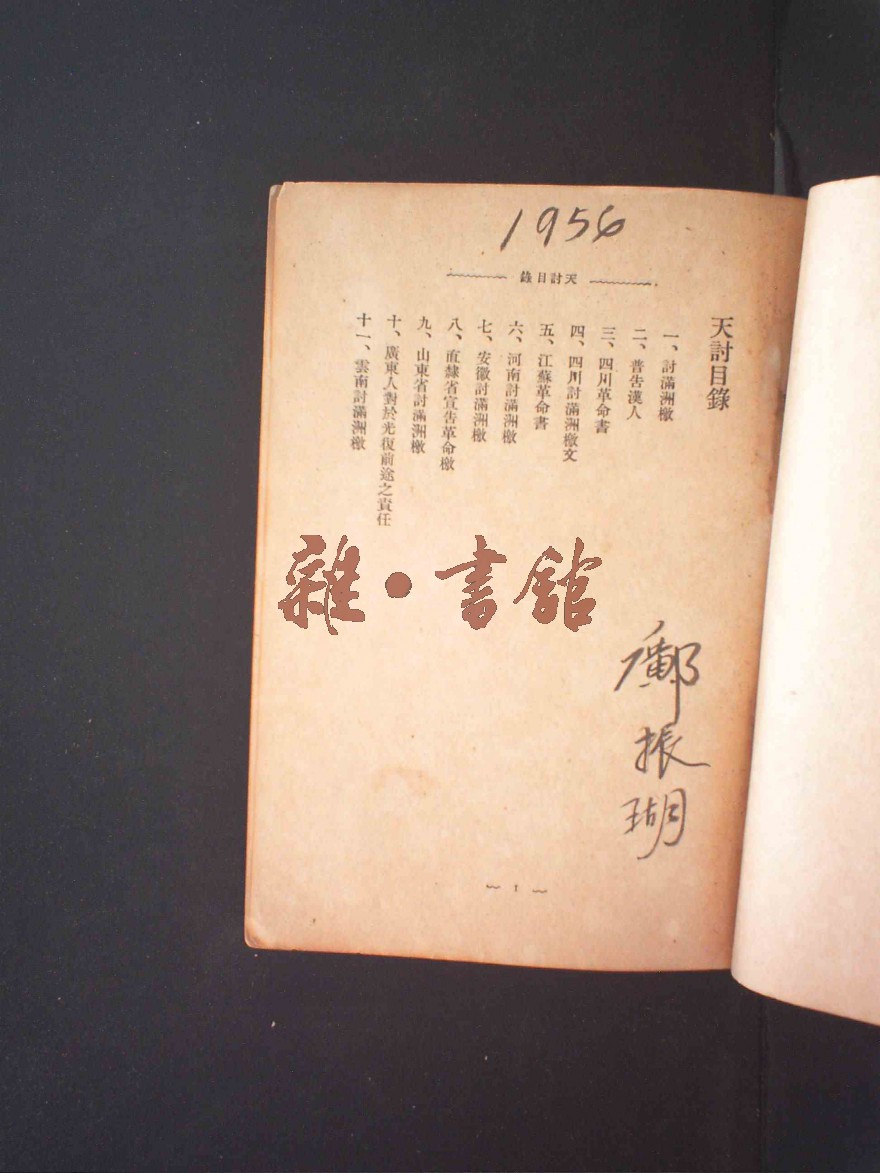 1956
天討目錄
天討目錄
一、討滿洲檄
二、普告漢人
三、四川革命書
四、四川討滿洲檄文
五、江蘇革命書
六、河南討滿洲檄
七、安徽討滿洲檄
八、直隸省宣告革命檄
九、山東省討滿洲檄
十、廣東人對於光復前途之責任
十一、雲南討滿洲檄
雜·書館
鄺振瑚
1